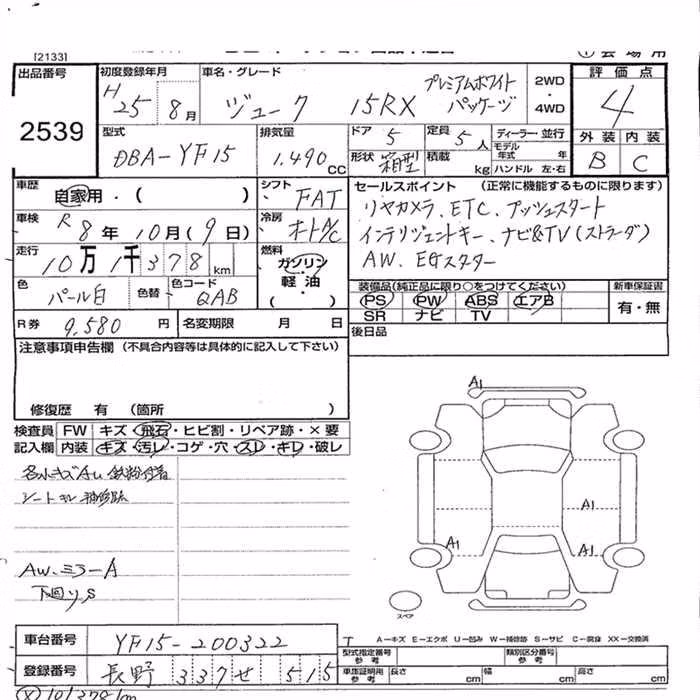 [2133]
出品番号 2539
初度登録年月 H25 8月
車名・グレード ジューク 15RX プレミアムホワイトパッケージ
2WD・4WD
評価点 4
外装 内装
B C
型式 DBA-YF15
排気量 1.490 CC
ドア 5 定員 5人
形状 箱型 積載 kg
ディーラー 並行
モデル年式 年
ハンドル 左・右
車歴 自家用・( )
シフト FAT
車検 R8年10月(9日)
冷房 オートA/C
走行 10万1千378km
燃料 ガソリン 軽油・( )
色 パール白 色替 色コード QAB
R券 9,580円 名変期限 月 日
セールスポイント (正常に機能するものに限ります)
リヤカメラ、ETC、プッシュスタート
インテリジェントキー、ナビ&TV(ストラーダ)
AW、EGスターター
装備品(純正品に限り○をつけてください) 新車保証書
PS PW ABS エアB 有・無
SR ナビ TV
後日品
注意事項申告欄 (不具合内容等は具体的に記入して下さい)
修復歴 有 (箇所 )
検査員 FW キズ・飛石・ヒビ割・リペア跡・×要
記入欄 内装 キズ・汚レ・コゲ・穴・スレ・キレ・破レ
シートキレ 補修跡
AW、ミラーA
下回りS
A1
A1
A1
A1
スペア
車台番号 YF15-200322
登録番号 長野 337 せ 515
A-キズ E-エクボ U-凹み W-補修跡 S-サビ C-腐食 XX-交換済
型式指定番号 参考 類別区分番号 参考
車庫証明用 参考 長さ cm 幅 cm 高さ cm
101378km